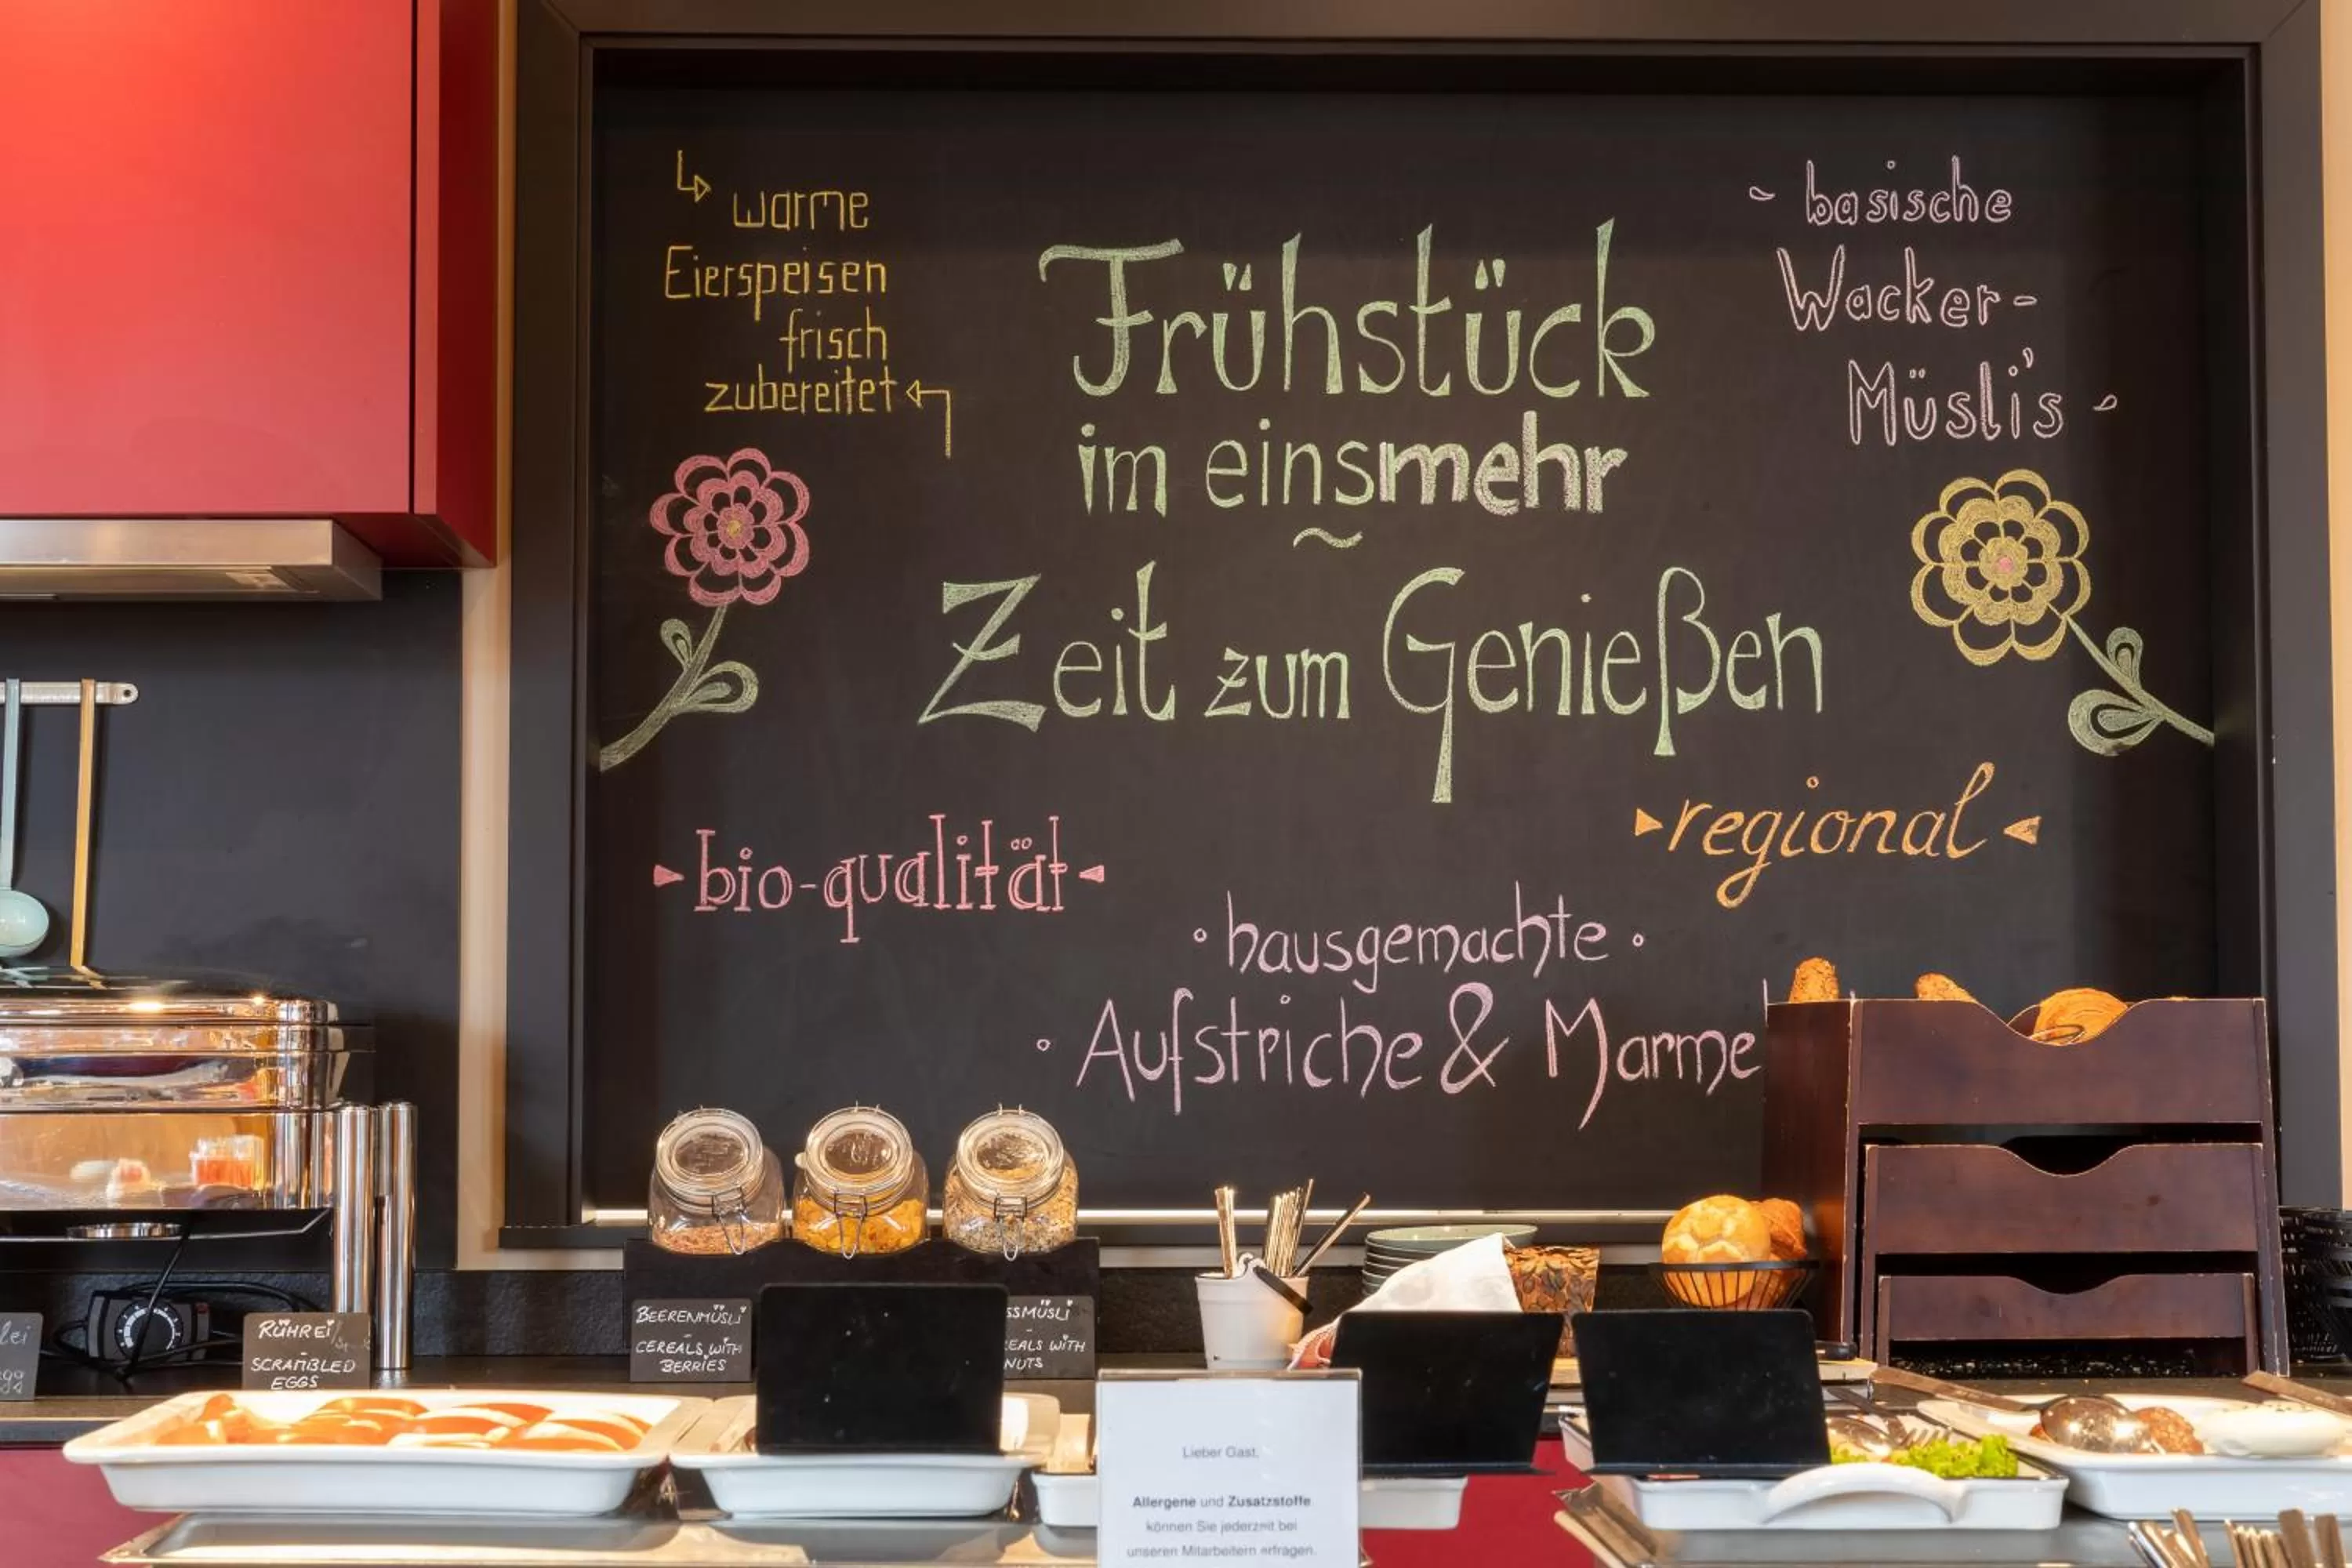 warme
Eierspeisen
frisch
zubereitet
Frühstück
im einsmehr
~
Zeit zum Genießen
- basische
Wacker-
Müsli's -
bio-qualität
regional
hausgemachte
Aufstriche & Marme
RÜHREI
SCRAMBLED
EGGS
BEERENMÜSLI
-
CEREALS WITH
BERRIES
SSMÜSLI
EALS WITH
NUTS
Lieber Gast,
Allergene und Zusatzstoffe
können Sie jederzeit bei
unseren Mitarbeitern erfragen.